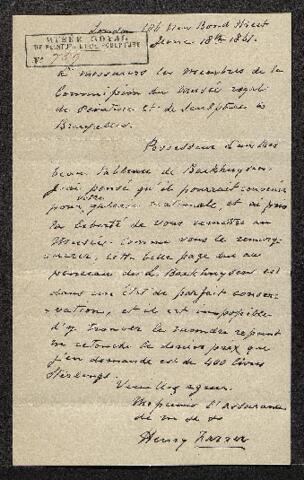 London 186 New Bond Street
MUSÉE ROYAL
DE PEINTURE ET DE SCULPTURE
June 18th 1861.
N° 759
à Messieurs les Membres de la
Commission du Musée royal
de Peinture et de Sculpture à
Bruxelles.
Possesseur d'un très
beau tableau de Backhuysen
j'ai pensé qu'il pourrait convenir
pour votre galerie nationale, et ai pris
la liberté de vous remettre au
Musée. Comme vous le remarq-
uerez, cette belle page due au
pinceau des L. Backhuysen est
dans un état de parfait conser-
vation, et il est impossible
d'y trouver le moindre repeint
ou retouche le dernier prix que
j'en demande est de 400 livres
Sterlings.
Veuillez agréer,
Messieurs l'assurance
de
Henry Farrer